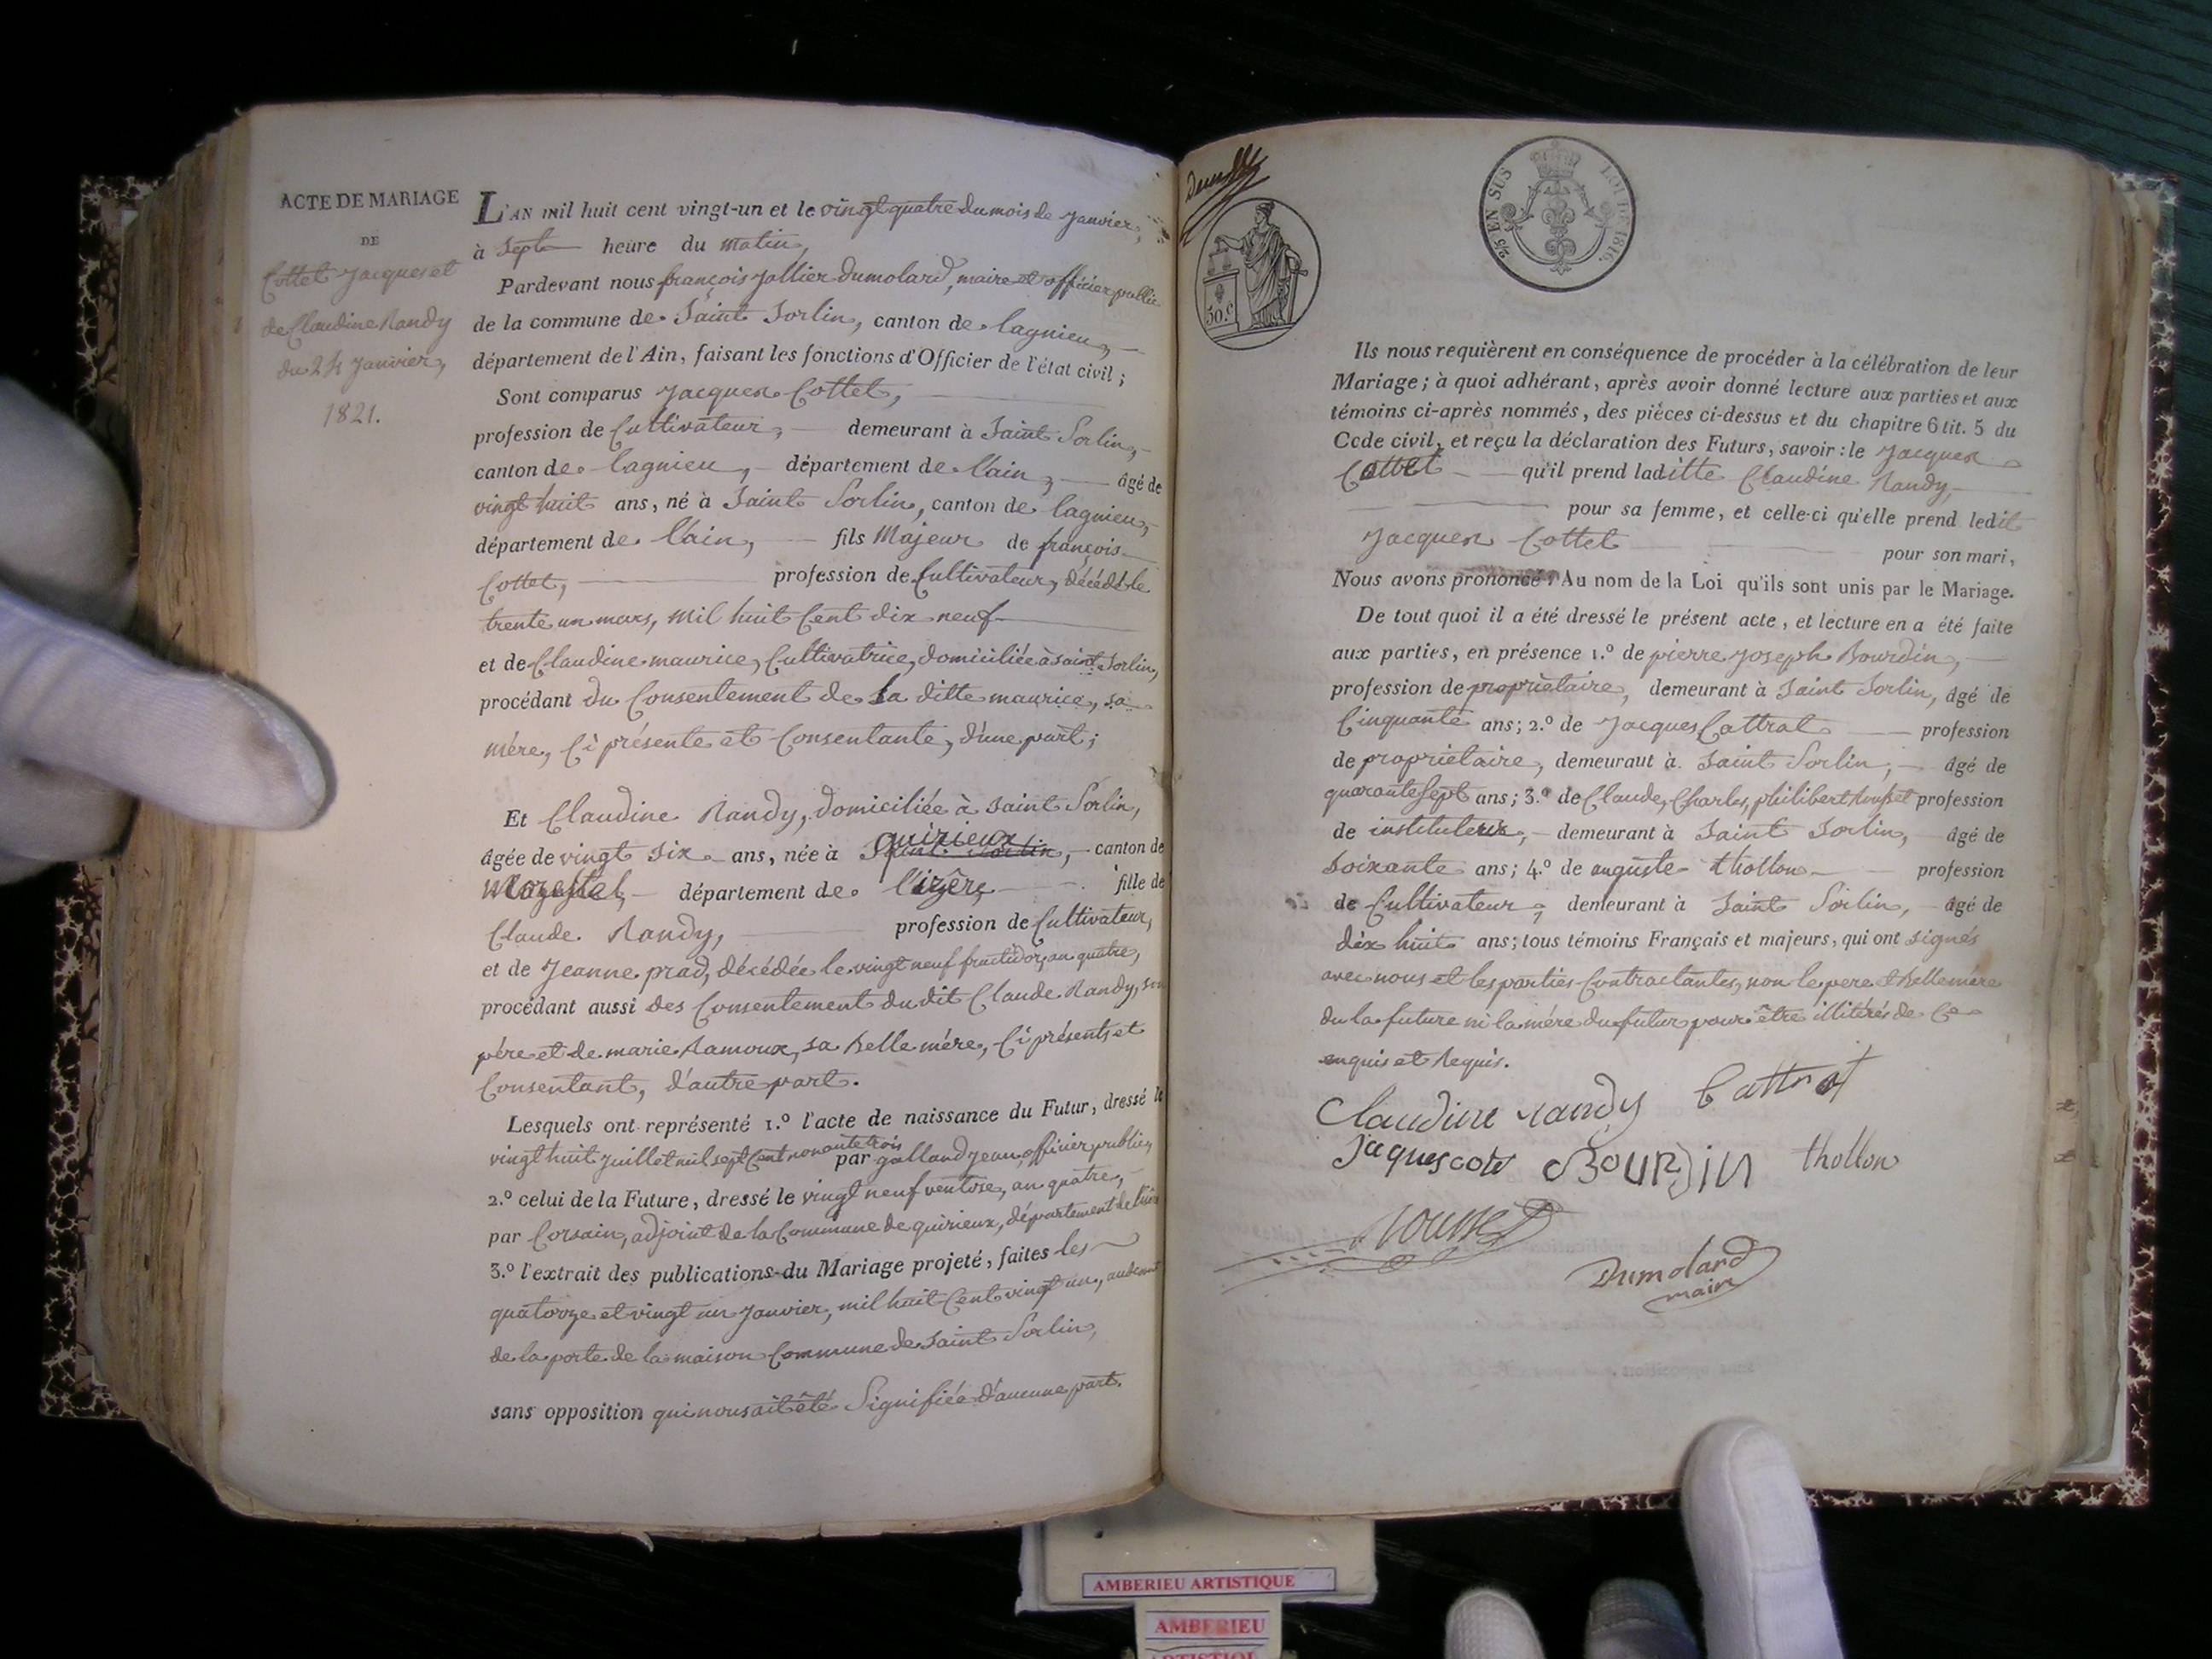 ACTE DE MARIAGE
DE
Cottet Jacques et
de Claudine Randy
du 24 Janvier,
1821.
L'AN mil huit cent vingt-un et le vingt quatre du mois de Janvier,
à Sept heure du matin,
Pardevant nous françois Jallier Dumolard, maire et officier public
de la commune de Saint Sorlin, canton de lagnieu,
département de l'Ain, faisant les fonctions d'Officier de l'état civil ;
Sont comparus Jacques Cottet,
profession de Cultivateur, demeurant à Saint Sorlin,
canton de lagnieu, département de l'ain, âgé de
vingt huit ans, né à Saint Sorlin, canton de lagnieu,
département de l'ain, fils Majeur de françois
Cottet, profession de Cultivateur, décédé le
trente un mars, mil huit Cent dix neuf
et de Claudine maurice, Cultivatrice, domiciliée à saint Sorlin,
procédant du Consentement de La ditte maurice, sa
mére, Ci présente et Consentante, d'une part ;
Et Claudine Randy, domiciliée à Saint Sorlin,
quirieux
âgée de vingt Six ans, née à Saint Sorlin, canton de
Morestel, département de l'izère fille de
Claude Randy, profession de Cultivateur,
et de Jeanne prad, décédée le vingt neuf fructidor, an quatre,
procédant aussi des Consentement du dit Claude Randy, son
pére et de marie Ramoux, sa Belle mére, Ci présents et
Consentant, d'autre part.
Lesquels ont représenté 1.º l'acte de naissance du Futur, dressé le
vingt huit Juillet mil sept Cent nonante trois par galland Jean, officier public,
2.º celui de la Future, dressé le vingt neuf ventose, an quatre,
par Corsain, adjoint de la Commune de quirieux, département de l'izère
3.º l'extrait des publications du Mariage projeté, faites les
quatorze et vingt un Janvier, mil huit Cent vingt un, audevant
de la porte de la maison Commune de Saint Sorlin,
sans opposition qui nous ait été Signifiée d'aucune part.
2/5 EN SUS
LOI DE 1816.
50.c
Ils nous requièrent en conséquence de procéder à la célébration de leur
Mariage ; à quoi adhérant, après avoir donné lecture aux parties et aux
témoins ci-après nommés, des pièces ci-dessus et du chapitre 6 tit. 5 du
Code civil, et reçu la déclaration des Futurs, savoir : le Jacques
Cottet qu'il prend laditte Claudine Randy,
pour sa femme, et celle-ci qu'elle prend ledit
Jacques Cottet pour son mari,
Nous avons prononcé : Au nom de la Loi qu'ils sont unis par le Mariage.
De tout quoi il a été dressé le présent acte, et lecture en a été faite
aux parties, en présence 1.º de pierre Joseph Bourdin,
profession de propriétaire, demeurant à Saint Sorlin, âgé de
Cinquante ans ; 2.º de Jacques Cattrat profession
de propriétaire, demeuraut à Saint Sorlin, âgé de
quarante Sept ans ; 3.º de Claude, Charles, philibert Rousset profession
de instituteur, demeurant à Saint Sorlin, âgé de
soixante ans ; 4.º de auguste thollon profession
de Cultivateur, demeurant à Saint Sorlin, âgé de
dix huit ans ; tous témoins Français et majeurs, qui ont signés
avec nous et les parties Contractantes, non le pere et Bellemére
du la future ni la mére du futur pour être illitérés de Ce
enquis et Requis.
Claudine randy Cattrat
Jaques cote Bourdin thollon
rousset
Dumolard
maire
AMBERIEU ARTISTIQUE
AMBERIEU
ARTISTIQUE